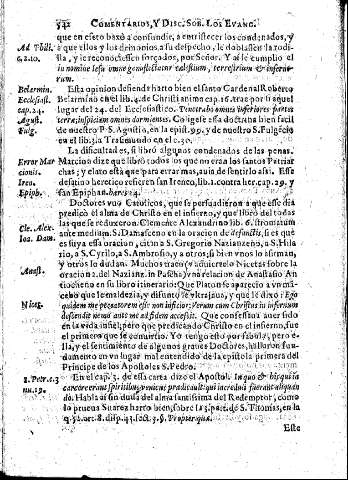 542 COMENTARIOS, Y DISC. SOB. LOS EVANG.
que en esto baxó a confundir, a entristecer los condenados, y
Ad Phili. a que ellos y los demonios a su despecho, le doblassen la rodi-
6.2.10. lla, y le reconociessen forçados, por Señor. Y assi le cumplio el
in nomine Iesu omne genu flectatur cælestium, terrestrium & inferno-
rum.
Belarmin. Esta opinion defiende harto bien el santo Cardenal Roberto
Ecclesiast. Belarmino en el lib. 4. de Christi anima cap. 16. trae por si aquel
cap. 24. lugar del 24. del Ecclesiastico. Penetrabo omnes inferiores partes
Agust. terræ, inspiciam omnes dormientes. Coligese essa doctrina bien facil
Fulg. de nuestro P. S. Agustin, en la epist. 99. y de nuestro S. Fulgecio
en el lib. 3. a Trasimundo en el c. 30.
La dificultad es, si libró algunos condenados de las penas.
Error Mar Marcion dize que libró todos los que no eran los santos Patriar
cionis. chas; y claro está que para errar mas, auia de sentirlo assi. Esse
Iren. desatino heretico refieren san Ireneo, lib. 1. contra her. cap. 29. y
Epiph. san Epiphan. hæres. 24.
Doctores vuo Catolicos, que se persuadieron a que esse dia
predicó el alma de Christo en el infierno, y que libró del todas
Cle. Alex. las que se reduxeron. Clemente Alexandrino lib. 6. stromatum
Ioa. Dam. ante medium. S. Damasceno en la oracion de defunctis, si es que
es suya essa oracion, citan a S. Gregorio Nazianzeno, a S. Hila
rio, a S. Cyrilo, a S. Ambrosio, y a otros; si bien vnos lo afirman,
y otros lo dudan. Muchos traen (y atribuyeselo Nicetas sobre la
Anast. oracion 2. del Nazianz. in Pascha) vna relacion de Anastasio An
tiocheno en su libro itinerario: Que Platon se aparecio a vn mã-
Nicet. cebo que le maldezia, y difunto le vltrajaua, y que le dixo: Ego
quidem me peccatorem esse non inficior: Verum cum Christus in infernum
descendit nemo ante me ad fidem accessit. Que confessaua auer sido
en la vida infiel; pero que predicando Christo en el infierno, fue
el primero que se conuirtio. Yo tengo esto por fabula; pero e-
lla, y el sentimiento de algunos graues Doctores, hallaron fun-
damento en vn lugar mal entendido de la epistola primera del
Principe de los Apostoles S. Pedro.
1. Petr. c. 3 En el cap. 3. de essa carta dize el Apostol. In quo & his qui in
nu. 19. carcere erant spiritibus, veniens prædicauit; qui increduli fuerant aliquan
do. Habla assi sin duda del alma santissima del Redemptor, como
lo prueua Suarez harto bien, sobre la 3. part. de S. Tomas, en la
q. 52. art. 8. disp. 43. sect. 3. §. Propter quæ.
Este